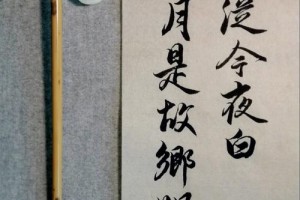 從今夜白
月是故鄉明